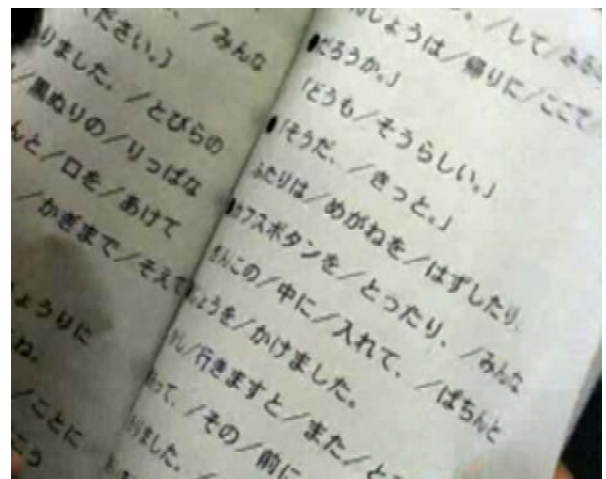 ください。」／みんな
りました。／とびらの
／黒ぬりの／りっぱな
と／口を／あけて
／かぎまで／そえて
ように
ね。
／ことに
こう
。／して／
しょうは／帰りに／ここで／
だろうか。」
「どうも／そうらしい。」
「そうだ、／きっと。」
ふたりは／めがねを／はずしたり、
カフスボタンを／とったり、／みんな
きんこの／中に／入れて、／ぱちんと
じょうを／かけました。
行きますと／また／と
って、／その／前に
りました。／